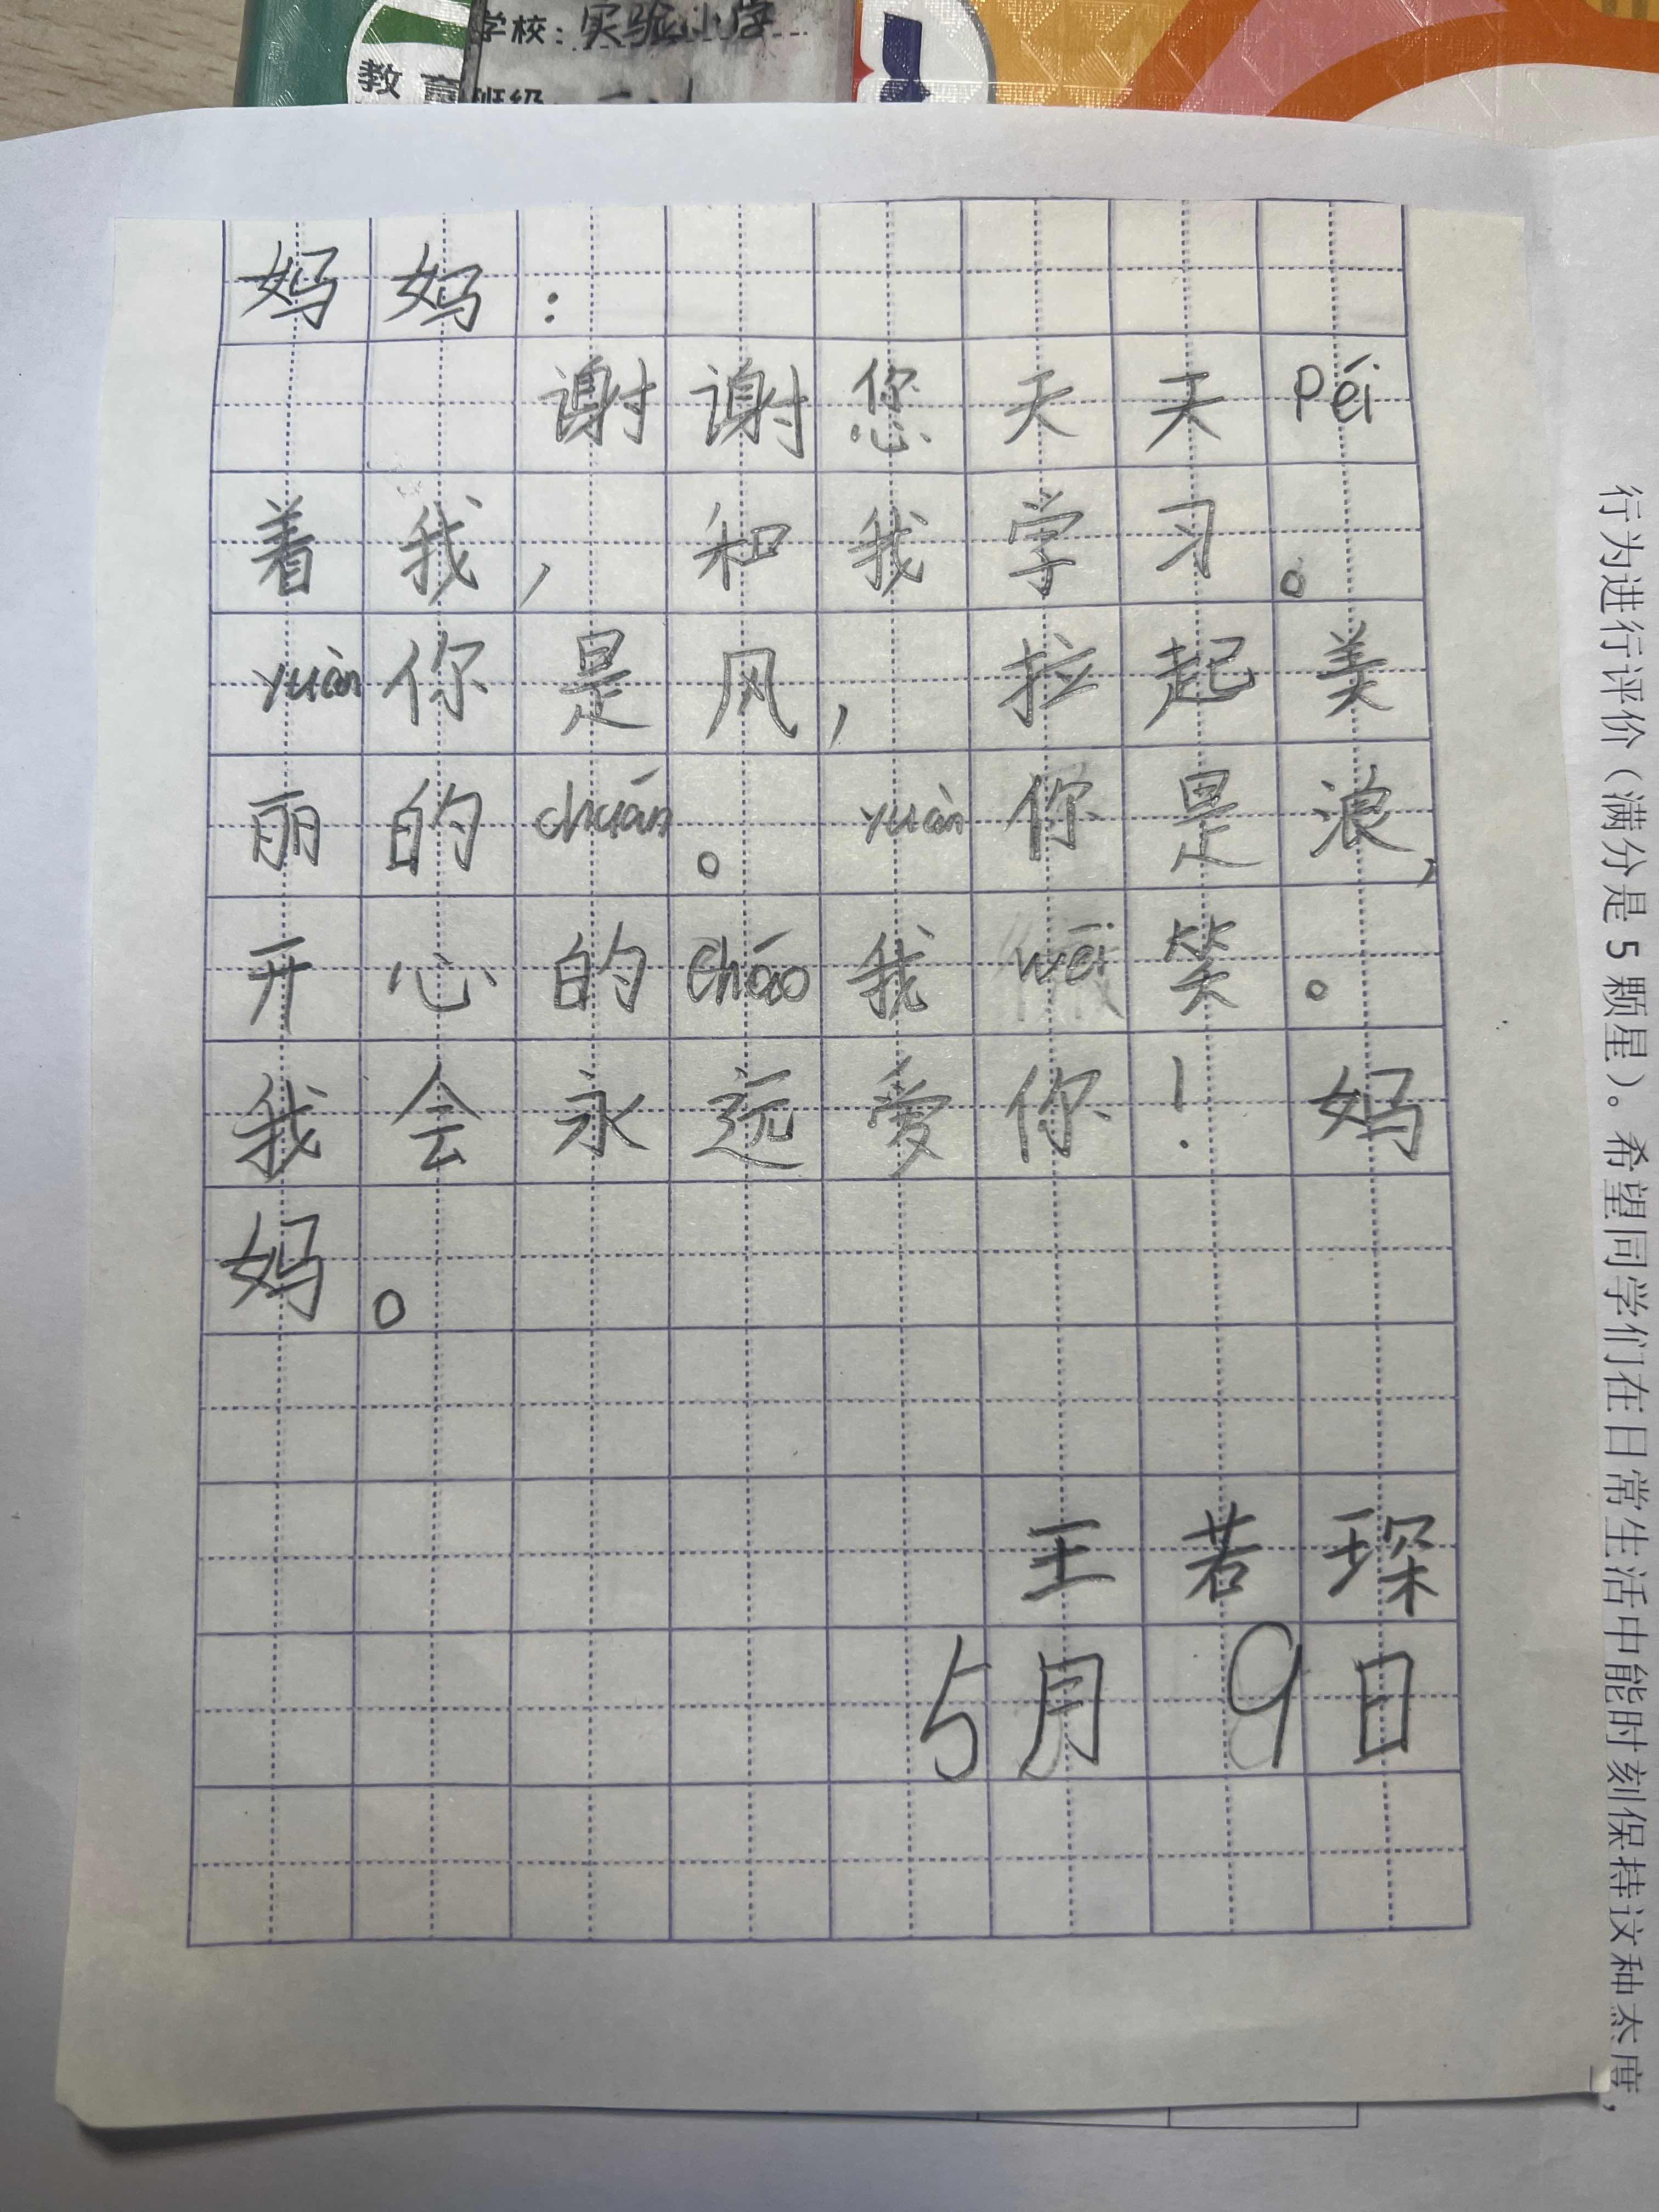 学校：实验小学
教育
班级
妈妈：
谢谢您天天péi
着我，和我学习。
yuàn你是风，拉起美
丽的chuán。yuàn你是浪，
开心的cháo我wēi笑。
我会永远爱你！妈
妈。
王若琛
5月9日
行为进行评价（满分是5颗星）。希望同学们在日常生活中能时刻保持这种态度，